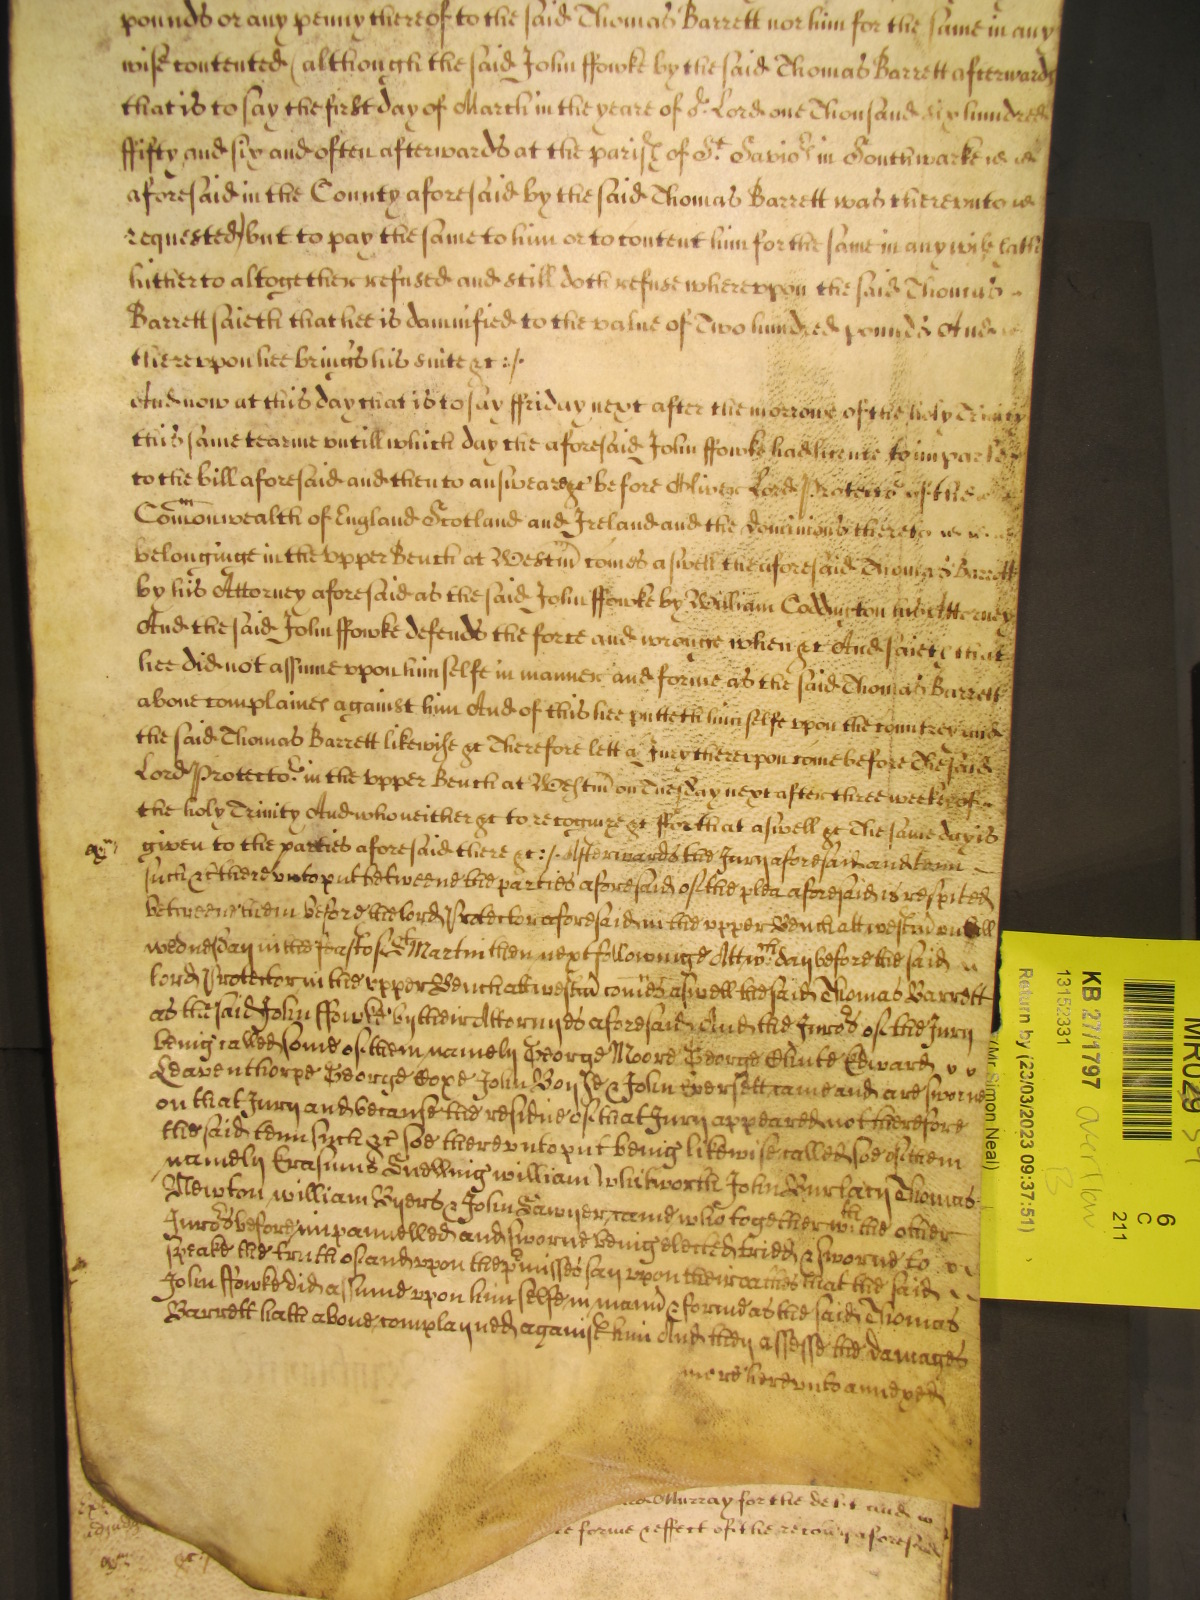 pounds or any penny thereof to the said Thomas Barrett nor him for the same in any
wise contented (although the said John ffowke by the said Thomas Barrett afterwards
that is to say the first day of March in the yeare of or Lord one Thousand six hundred
ffifty and six and often afterwards at the parish of St Savior in Southwarke
aforesaid in the County aforesaid by the said Thomas Barrett was therevnto
requested) but to pay the same to him or to content him for the same in any wise hath
hitherto altogether refused and still doth refuse wherevpon the said Thomas
Barrett saieth that hee is damnified to the value of Two hundred pounds And
therevpon hee brings his suite &c
And now at this day that is to say ffriday next after the morrowe of the holy Trinity
this same tearme vntill which day the aforesaid John ffowke had licence to imparle
to the bill aforesaid and then to answeare &c before Oliver Lord Protector of the
Comonwealth of England Scotland and Ireland and the dominions thereto
belonginge in the vpper Bench at Westm comes aswell the aforesaid Thomas Barrett
by his Attorney aforesaid as the said John ffowke by William Coddington his Attorney
And the said John ffowke defends the force and wronge when &c And saieth that
hee did not assume vpon himselfe in manner and forme as the said Thomas Barrett
above complaines against him And of this hee putteth himselfe vpon the countrey and
the said Thomas Barrett likewise &c Therefore lett a Jury therevpon come before the said
Lord Protector in the vpper Bench at Westm on Tuesday next after three weekes of
the holy Trinity And who neither &c to recognize &c ffor that aswell &c The same day is
given to the parties aforesaid there &c Afterwards the Jury aforesaid and tenn
such &c therevnto put betweene the parties aforesaid of the plea aforesaid is respited
betweene them before the lord Protector aforesaid in the vpper Bench att westm vntill
wednesday in the feast of St Martin then next followinge Att wch day before the said
lord Protector in the vpper Bench att westm comes aswell the said Thomas Barrett
as the said John ffowke by their Attornyes aforesaid And the Jurors of the Jury
being called some of them namely George Moore George Clinte Edward
Leaventhorpe George Cope John Boyse & John Eversett came and are sworne
on that Jury and because the residue of that Jury appeared not therefore
the said tenn such &c soe therevnto put being likewise called soe of them
namely Erasmus Snelling william Whitworth John Burlacy Thomas
Newton william Byers & John Sawyer came who together with the other
Jurors before impannelled and sworne being elected tried & sworne to
speake the truth of and vpon the pmisses say vpon their oathes that the said
John ffowke did assume vpon himselfe in mann & forme as the said Thomas
Barrett hath above complayned against him And they assesse the damages
more herevnto annexed
Murray for the debt and
forme & effect of the recovy aforesaid
KB 27/1797
13152331
Return by (23/03/2023 09:37:51)
(Mr Simon Neal)
overflow
B
6
C
211
MR029